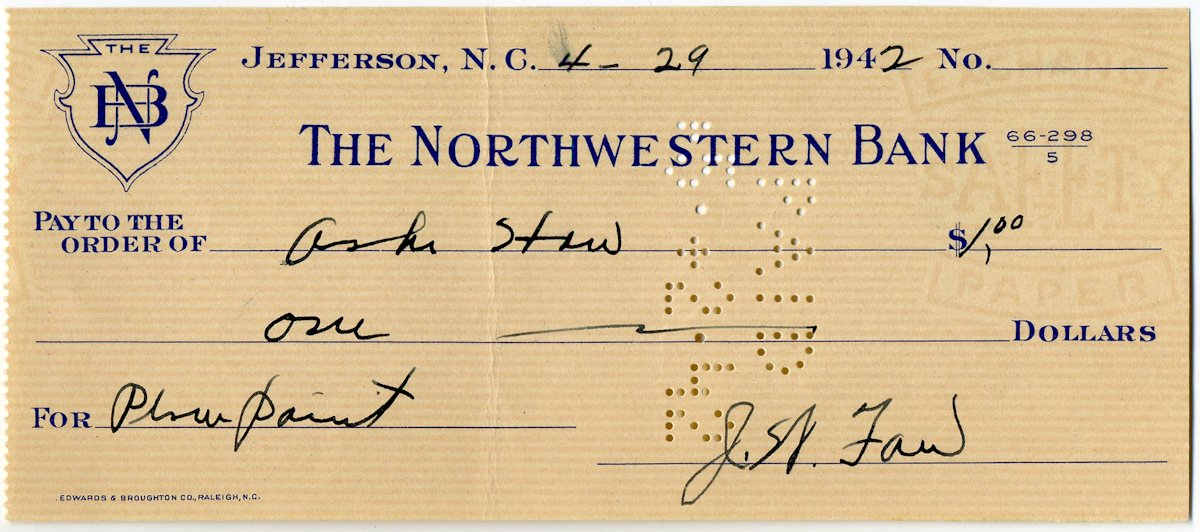 THE
NB
JEFFERSON, N. C. 4 - 29 1942 No.
THE NORTHWESTERN BANK 66-298
5
PAY TO THE
ORDER OF Ashe $1.00
One DOLLARS
FOR Plow point
J. W. Faw
PAID
SAFETY
PAPER
EDWARDS & BROUGHTON CO., RALEIGH, N.C.